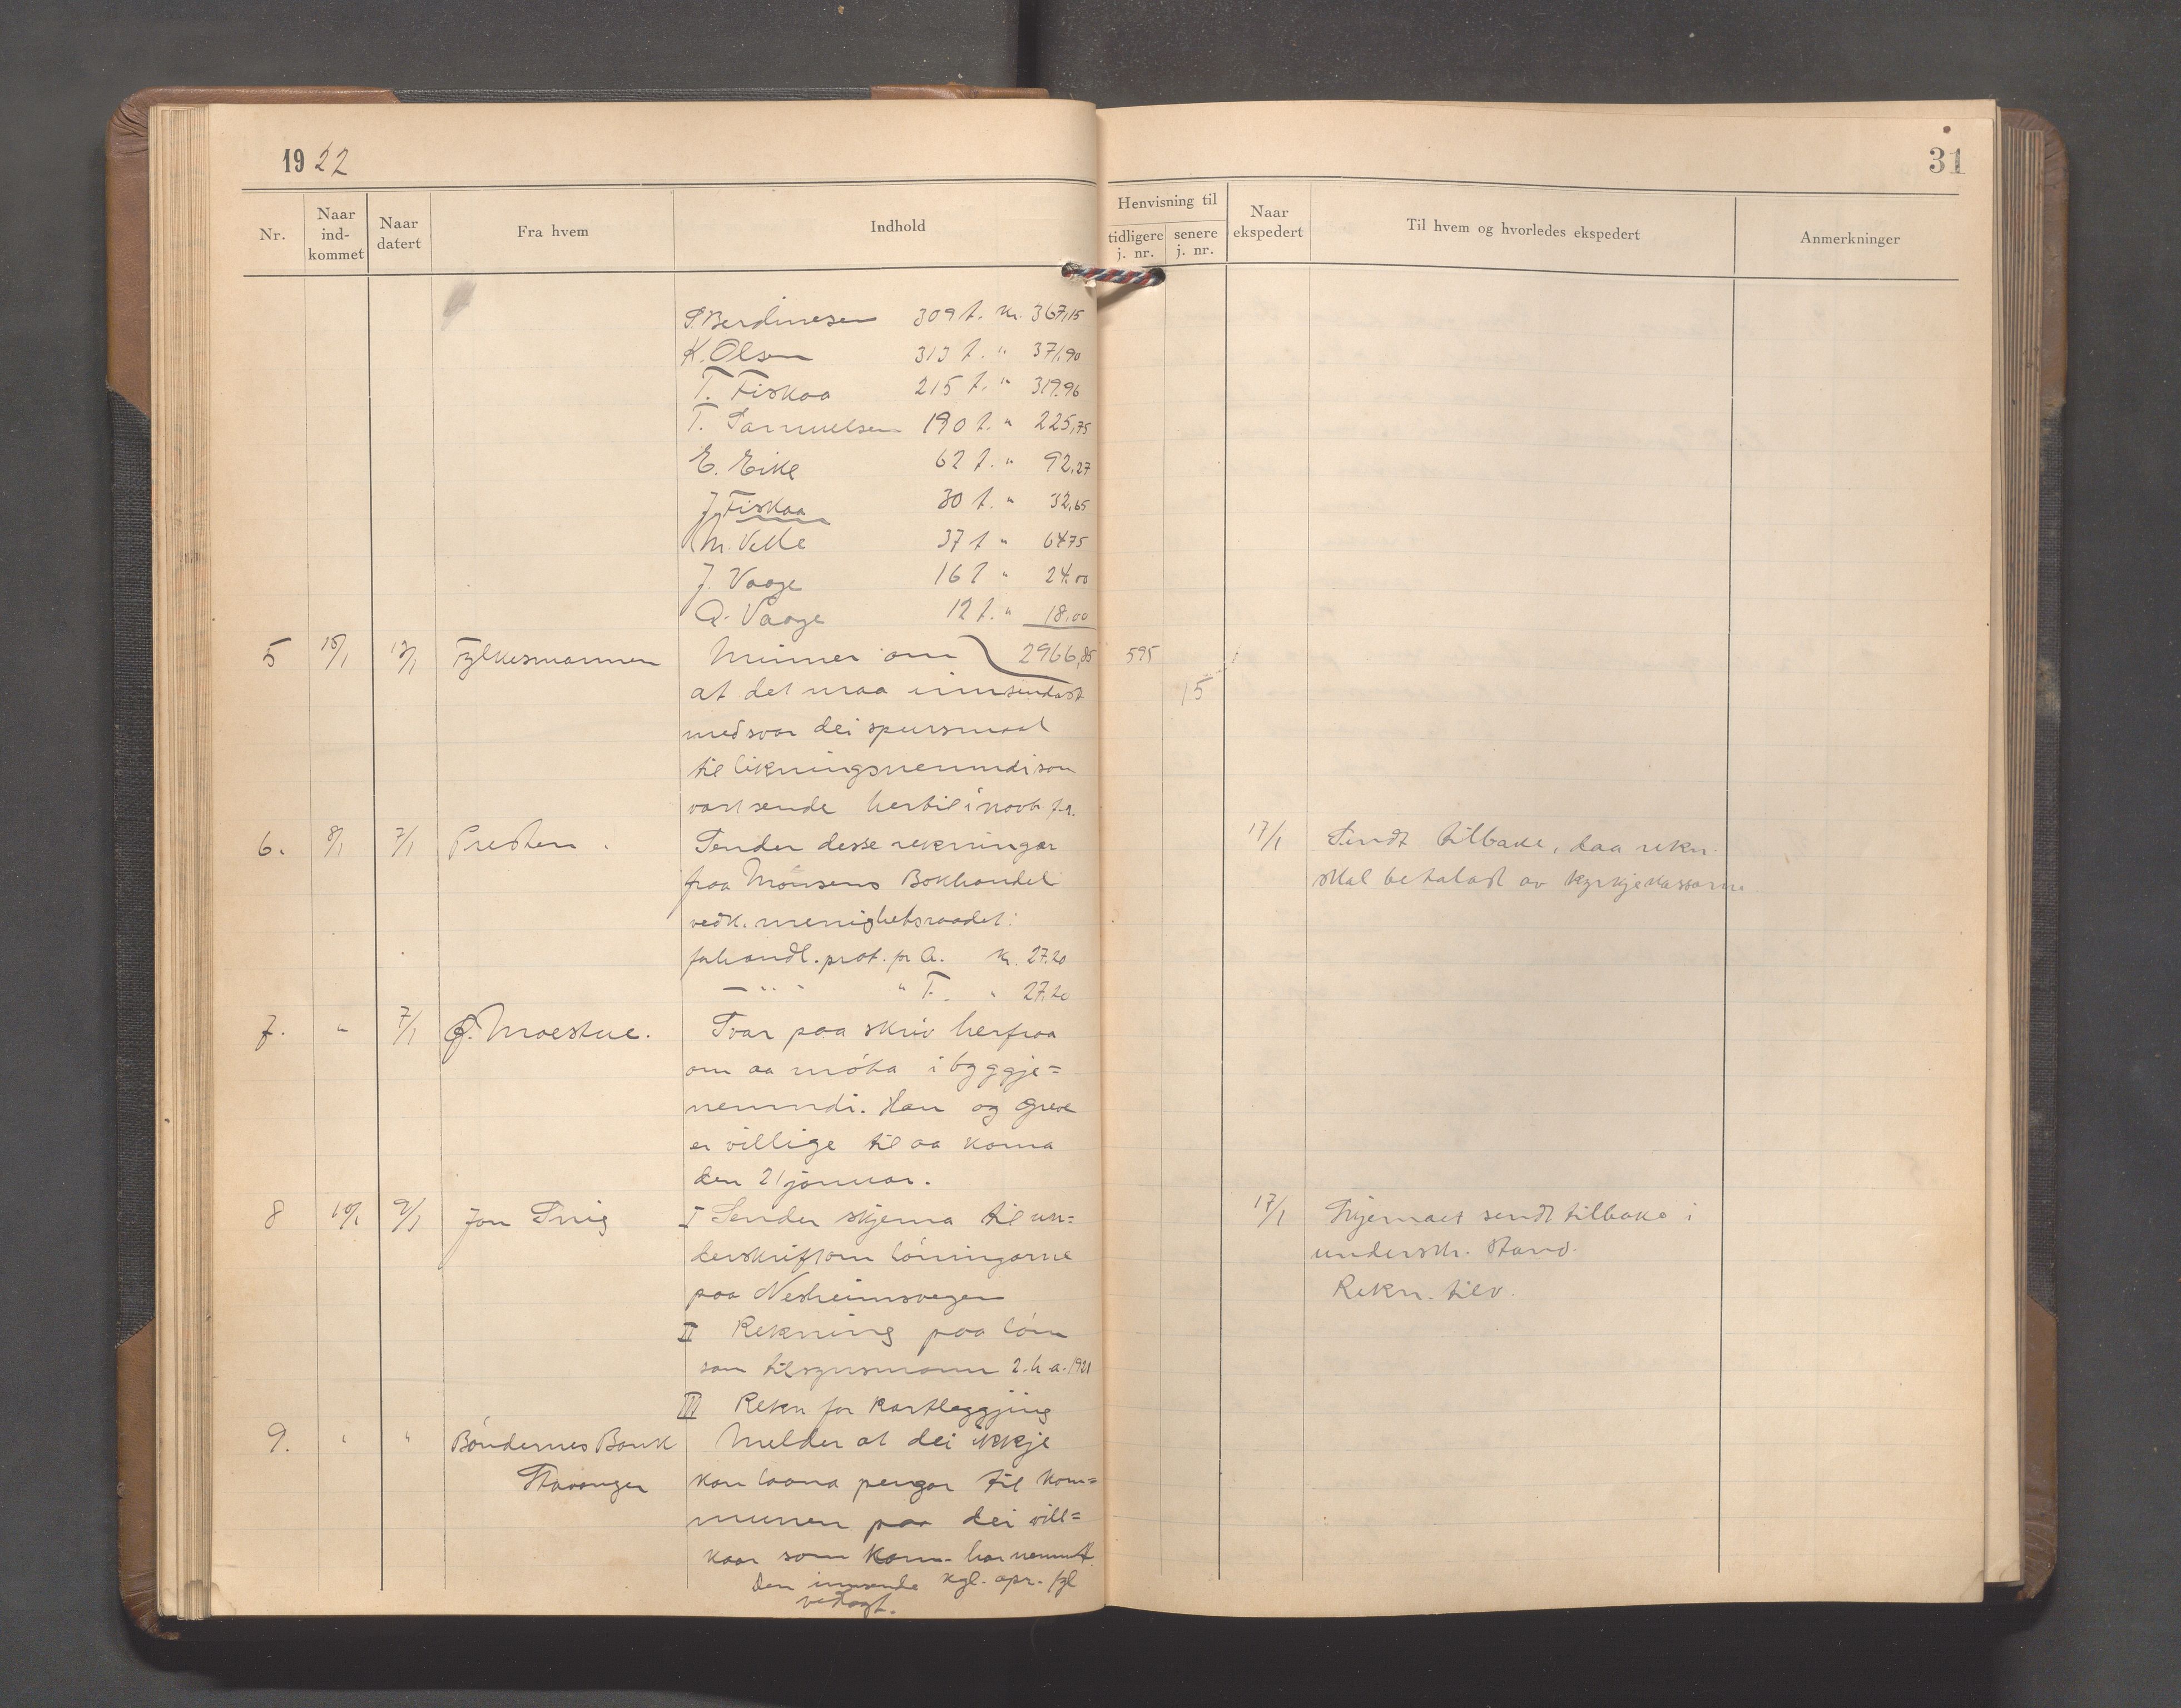 1922
31
Nr.
Naar ind-kommet
Naar datert
Fra hvem
Indhold
Henvisning til
tidligere j. nr.
senere j. nr.
Naar ekspedert
Til hvem og hvorledes ekspedert
Anmerkninger
S. Berdinesen 309 t. Kr. 367,15
K. Olsen 313 t. " 371,90
T. Fiskaa 215 t. " 319.96
T. Samuelsen 190 t. " 225,75
E. Eike 62 t. " 92,27
J. Fiskaa 30 t. " 32,65
M. Velle 37 t " 64 75
J. Vaage 16 t " 24.00
O. Vaage 12 t. " 18,00
5 10/1 13/1 Fylkesmannen Minner om 2966,85 595
at det maa innsendast 15
med svar dei spursmaal
til likningsnemndi som
vart sende hertil i novb f.a.
6. 8/1 7/1 Presten. Sender desse rekningar 17/1 Sendt tilbake, daa rekn.
fraa Monsens Bokhandel skal betalast av kyrkjekassarne
vedk. menighetsraadet:
forhandl. prot. pr A. Kr. 27.20
— " " " T. " 27,20
7. " 7/1 G. Moestue. Svar paa skriv herfraa
om aa móta i byggje=
nemndi. Han og Greve
er villige til aa koma
den 21 januar.
8 10/1 9/1 Jon Snig I Sender skjema til un= 17/1 Skjemaet sendt tilbake i
derskrift om lóningarne undersk. stand.
paa Nesheimsvegen Rekn. tilv.
II Rekning paa lón
som tilsynsmann 2. h. a. 1921
III Rekn for kartleggjing
9. " " Bóndernes Bank Melder at dei ikkje
Stavanger kan laana pengar til kom=
munen paa dei vill=
kaar som kom. har nemnt.
Den innsende kgl. apr. fyl
vedlagt.